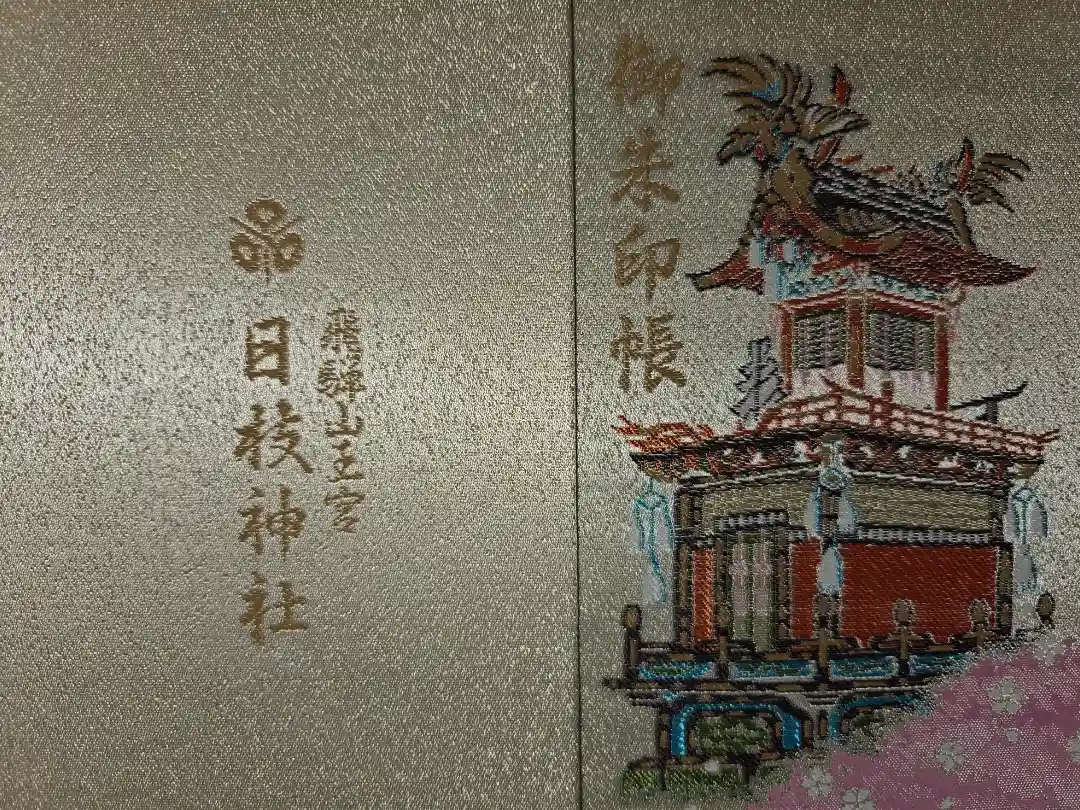 御朱印帳
飛驒山王宮
日枝神社